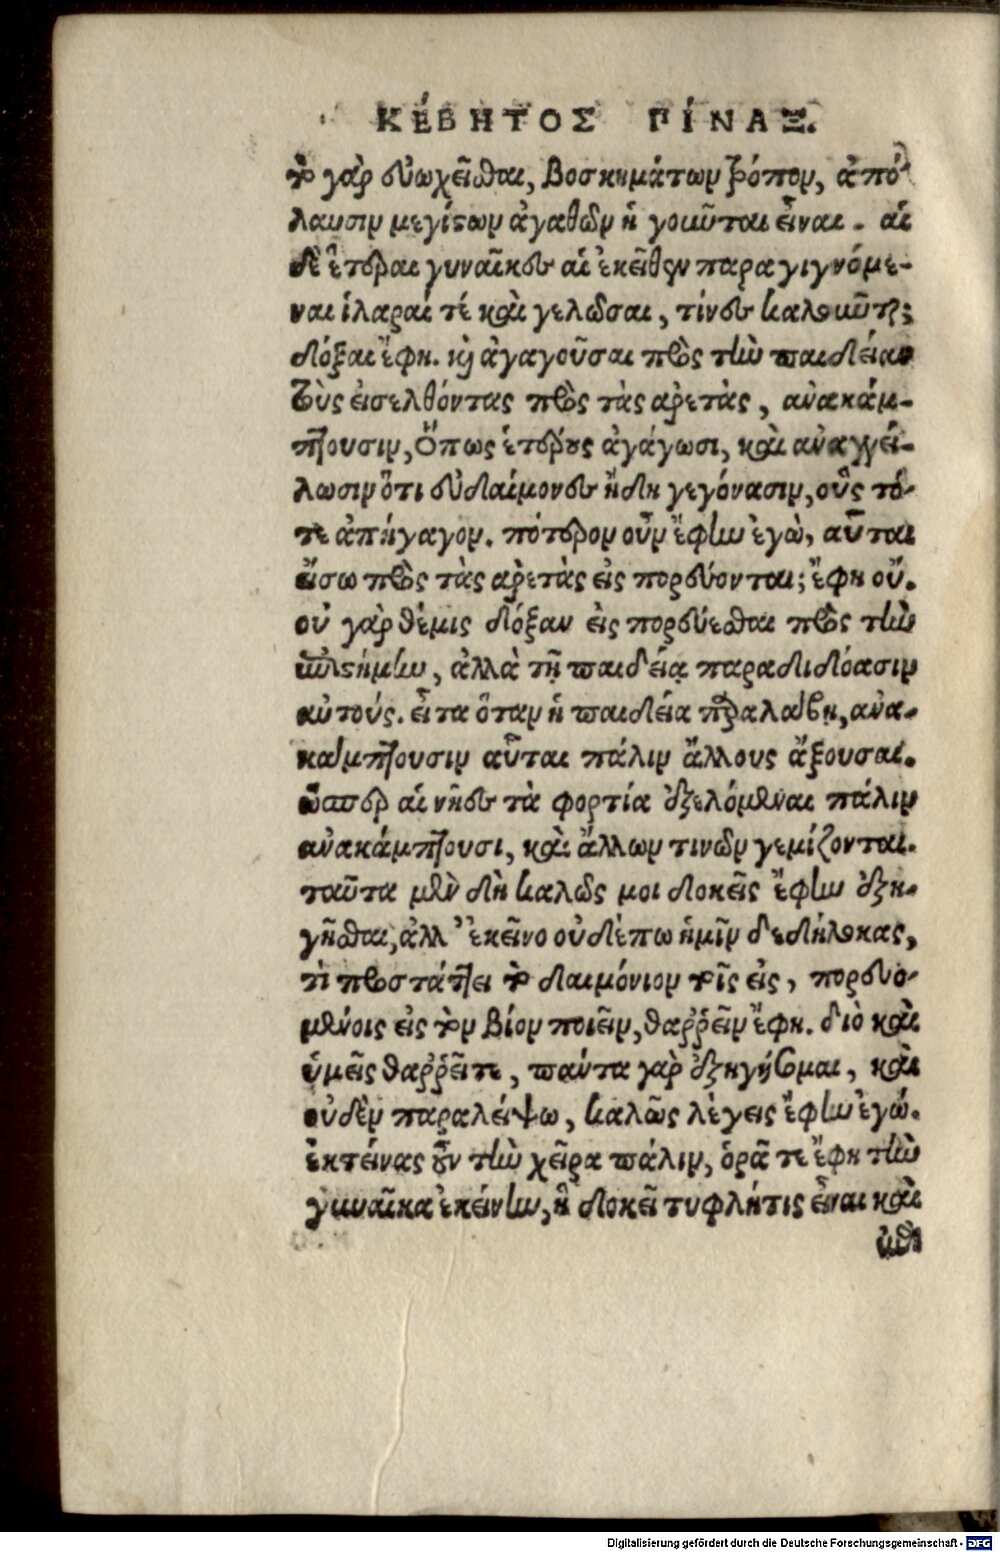 ΚΈΒΗΤΟΣ ΠΊΝΑΞ.
τὸ γὰρ εὐωχεῖσθαι, βοσκημάτων τρόπον, ἀπό-
λαυσιν μεγίστων ἀγαθῶν ἡγοιῶται εἶναι. αἱ
δὲ ἕτεραι γυναῖκες αἱ ἐκεῖθεν παραγιγνόμε-
ναι ἱλαραί τέ καὶ γελῶσαι, τίνες καλοιῶτ;
δόξαι ἔφη. καὶ ἀγαγοῦσαι πρὸς τὴν παιδείαν
τοὺς εἰσελθόντας πρὸς τὰς ἀρετὰς, ἀνακάμ-
πτουσιν, Ὅπως ἑτέρους ἀγάγωσι, καὶ ἀναγγεί-
λωσιν ὅτι εὐδαίμονες ἤδη γεγόνασιν, οὓς τό-
τε ἀπήγαγον. πότερον οὖν ἔφην ἐγὼ, αὗται
εἴσω πρὸς τὰς ἀρετὰς εἰς πορεύονται; ἔφη οὔ.
οὐ γὰρ θέμις δόξαν εἰς πορεύεσθαι πρὸς τὴν
ἐπιστήμην, ἀλλὰ τῇ παιδείᾳ παραδιδόασιν
αὐτούς. εἶτα ὅταν ἡ παιδεία παραλάβῃ, ἀνα-
κάμπτουσιν αὗται πάλιν ἄλλους ἄξουσαι.
ὥσπερ αἱ νῆες τὰ φορτία ἐξελόμεναι πάλιν
ἀνακάμπτουσι, καὶ ἄλλων τινῶν γεμίζονται.
ταῦτα μὲν δὴ καλῶς μοι δοκεῖς ἔφην ἐξη-
γῆσθαι, ἀλλ’ ἐκεῖνο οὐδέπω ἡμῖν δεδήλωκας,
τί προστάττει τὸ δαιμόνιον τοῖς εἰς, πορευο-
μένοις εἰς τὸν βίον ποιεῖν, θαῤῥεῖν ἔφη. διὸ καὶ
ὑμεῖς θαῤῥεῖτε, πάντα γὰρ ἐξηγήσομαι, καὶ
οὐδὲν παραλείψω, καλῶς λέγεις ἔφην ἐγώ.
ἐκτείνας οὖν τὴν χεῖρα πάλιν, ὁρᾶ τε ἔφη τὴν
γυναῖκα ἐκείνην, ἣ δοκεῖ τυφλή τις εἶναι καὶ
ἐπὶ